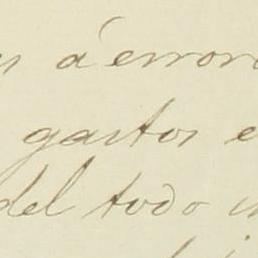 á error
gastos e
del todo i